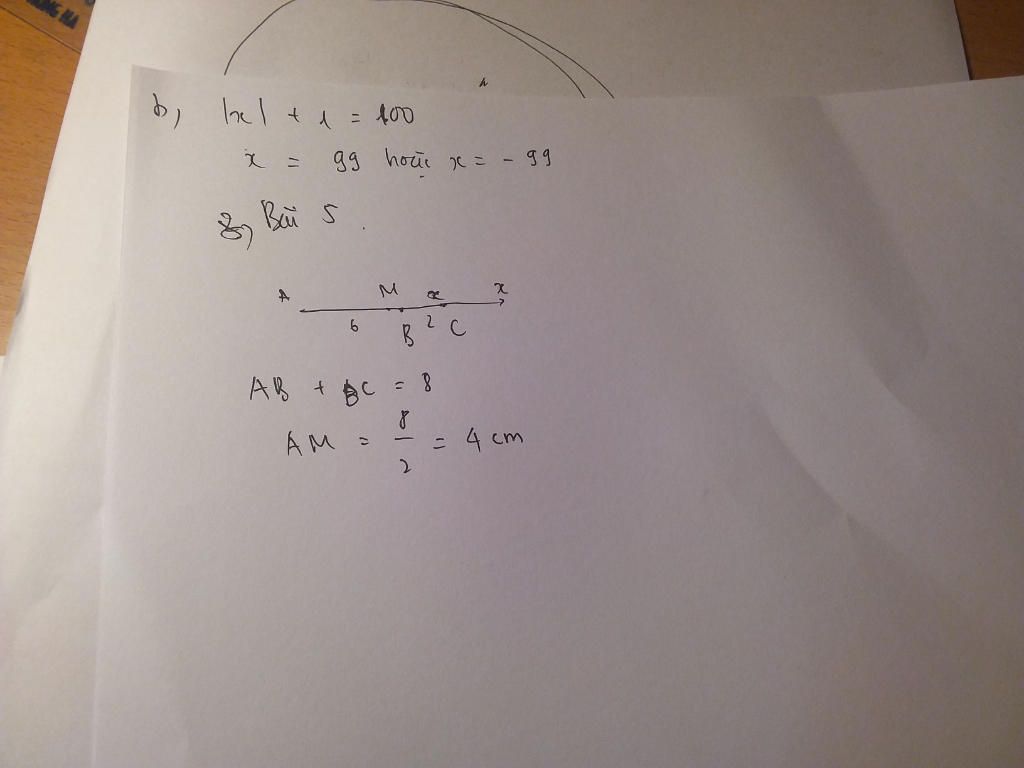 b, |x| + 1 = 100
x = 99 hoặc x = - 99
Bài 5
A M x
6 B 2 C
AB + BC = 8
AM = 8/2 = 4 cm